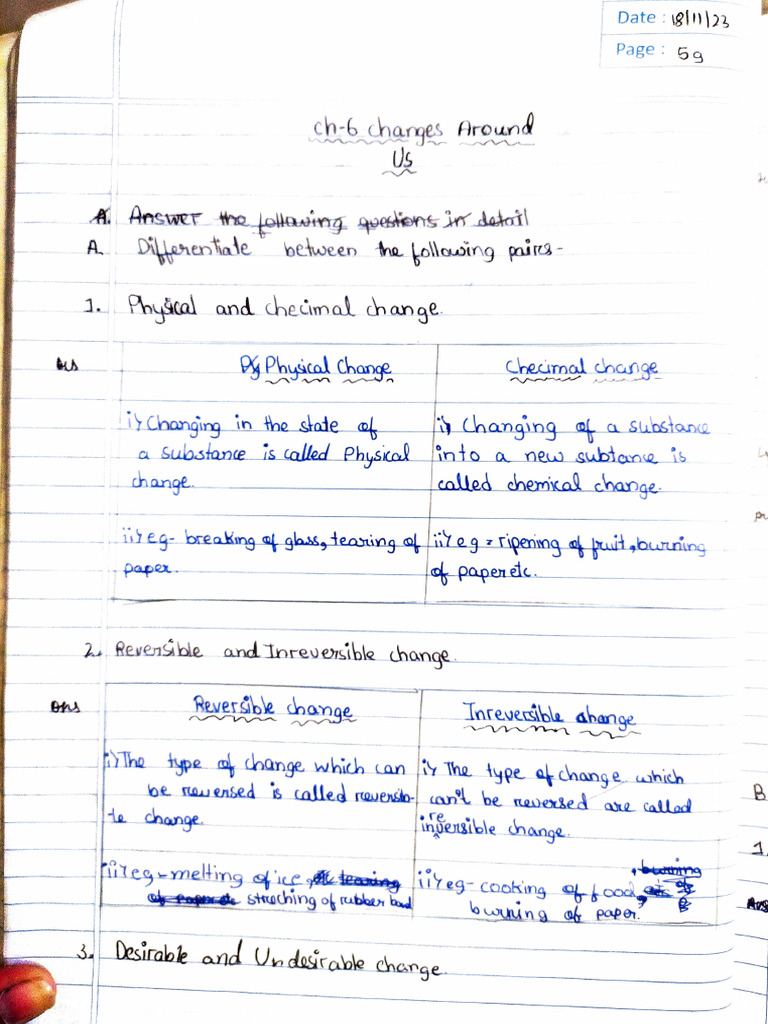 Date : 18/11/23
Page : 59
ch-6 changes Around
Us
A. Answer the following questions in detail
A. Differentiate between the following pairs-
1. Physical and checimal change.
Physical Change
Checimal change
i) Changing in the state of
a substance is called Physical
change.
i) Changing of a substance
into a new subtance is
called chemical change.
ii) eg- breaking of glass, tearing of
paper.
ii) eg = ripening of fruit, burning
of paper etc.
2. Reversible and Inreversible change.
Ans
Reversible change
Inreversible change
i) The type of change which can
be reversed is called reversib-
le change.
i) The type of change which
can't be reversed are called
irreversible change.
ii) eg- melting of ice, tearing
of paper streching of rubber band
ii) eg- cooking of food, burning
burning of paper.
3. Desirable and Undesirable change.
B
1.
Ans